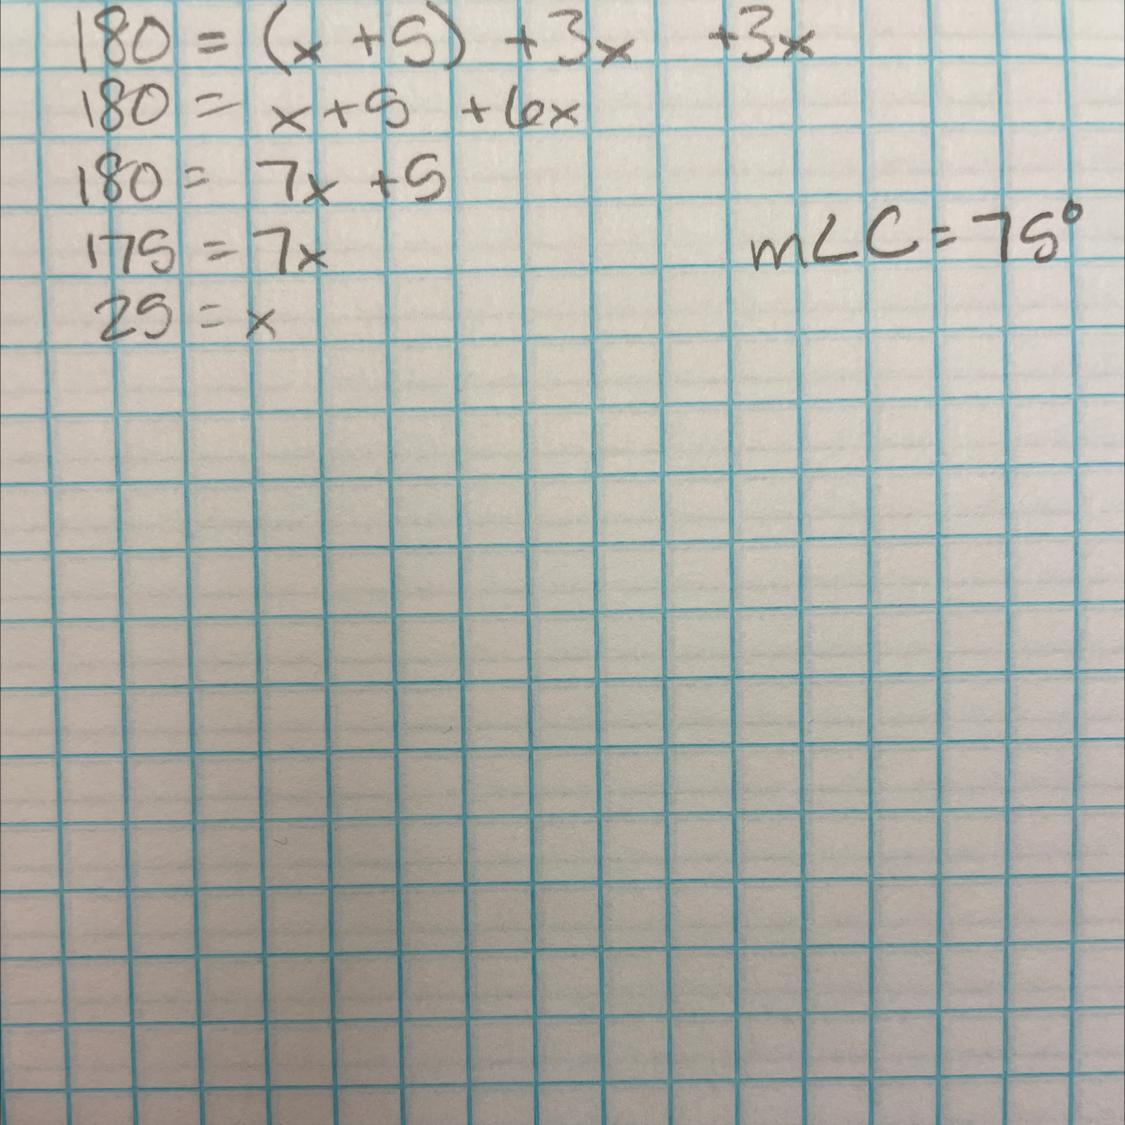 180 = (x + 5) + 3x + 3x
180 = x + 5 + 6x
180 = 7x + 5
175 = 7x
m∠C = 75°
25 = x